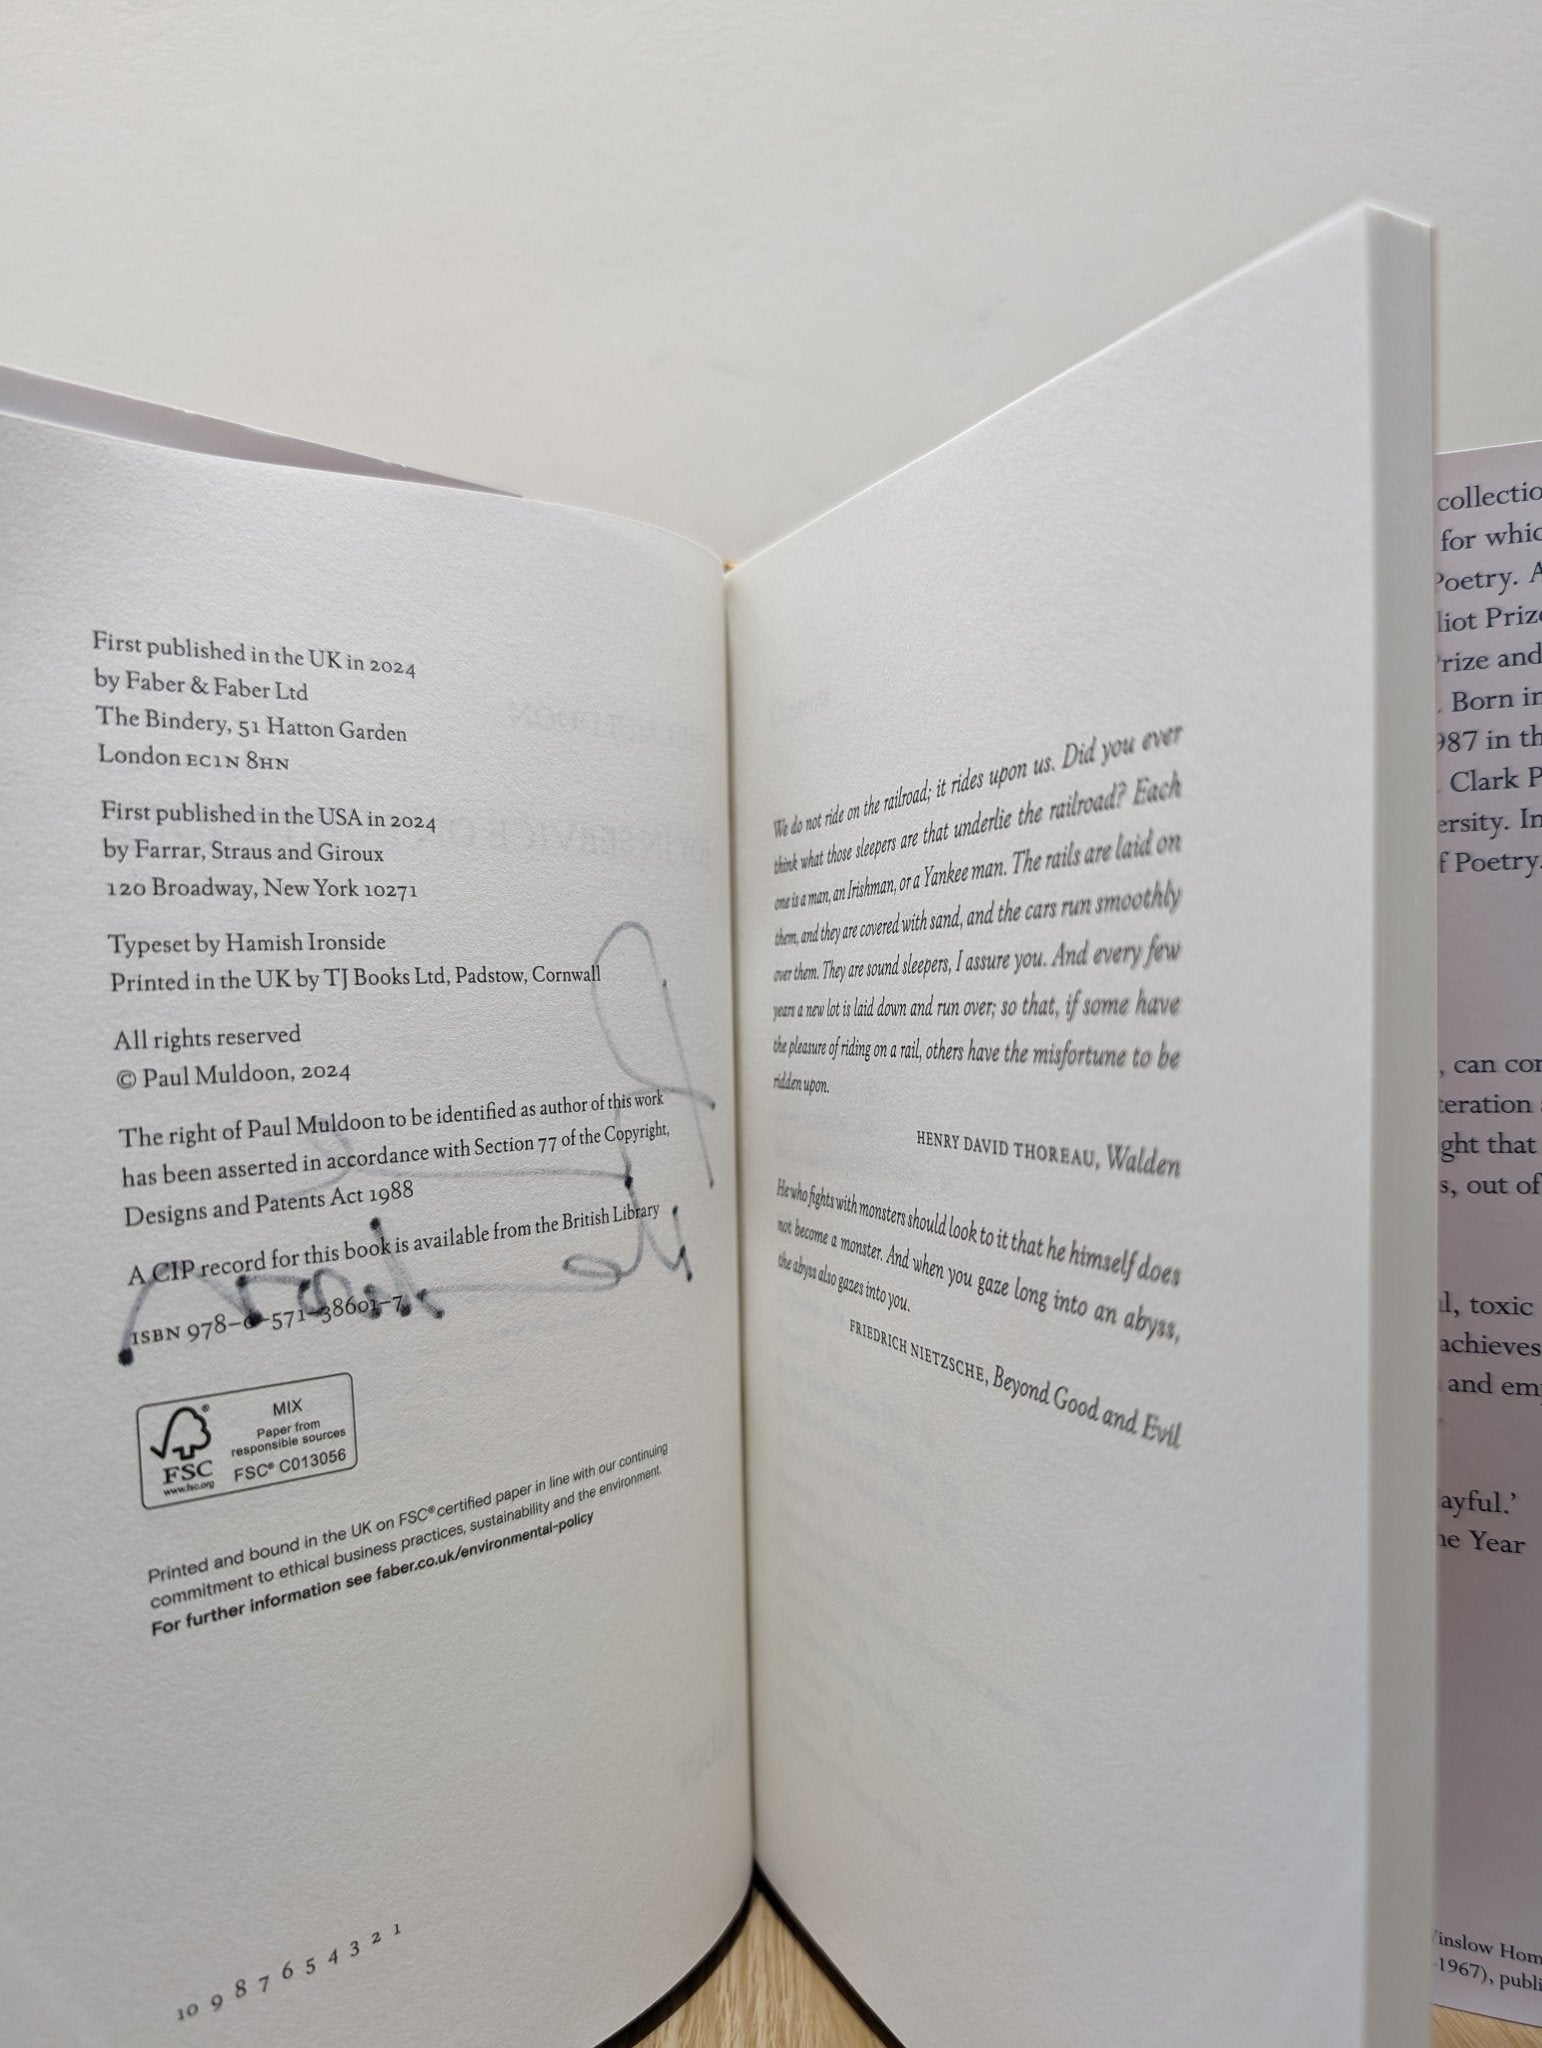 First published in the UK in 2024
by Faber & Faber Ltd
The Bindery, 51 Hatton Garden
London EC1N 8HN
First published in the USA in 2024
by Farrar, Straus and Giroux
120 Broadway, New York 10271
Typeset by Hamish Ironside
Printed in the UK by TJ Books Ltd, Padstow, Cornwall
All rights reserved
© Paul Muldoon, 2024
The right of Paul Muldoon to be identified as author of this work
has been asserted in accordance with Section 77 of the Copyright,
Designs and Patents Act 1988
A CIP record for this book is available from the British Library
ISBN 978–0–571–38601–7
MIX
Paper from
responsible sources
FSC® C013056
FSC
www.fsc.org
Printed and bound in the UK on FSC® certified paper in line with our continuing
commitment to ethical business practices, sustainability and the environment.
For further information see faber.co.uk/environmental-policy
10 9 8 7 6 5 4 3 2 1
We do not ride on the railroad; it rides upon us. Did you ever
think what those sleepers are that underlie the railroad? Each
one is a man, an Irishman, or a Yankee man. The rails are laid on
them, and they are covered with sand, and the cars run smoothly
over them. They are sound sleepers, I assure you. And every few
years a new lot is laid down and run over; so that, if some have
the pleasure of riding on a rail, others have the misfortune to be
ridden upon.
HENRY DAVID THOREAU, Walden
He who fights with monsters should look to it that he himself does
not become a monster. And when you gaze long into an abyss,
the abyss also gazes into you.
FRIEDRICH NIETZSCHE, Beyond Good and Evil
collectio
for whic
Poetry. A
liot Prize
Prize and
. Born in
987 in th
Clark P
ersity. In
f Poetry.
, can con
teration
ght that
s, out of
l, toxic
achieves
and em
ayful.’
he Year
Winslow Hom
–1967), publi